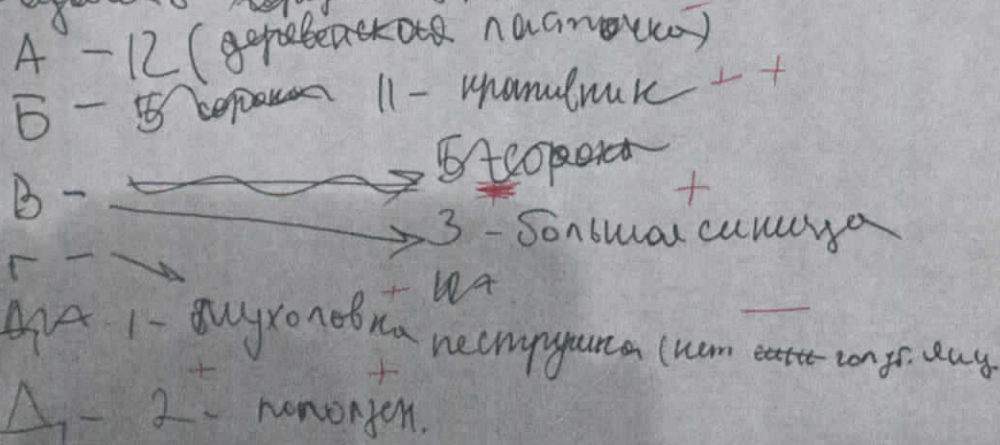 А - 12 (деревенская ласточка)
Б - 5 сорока 11 - крапивник
5 сорока
В -
3 - большая синица
Г -
Д,А 1 - мухоловка пеструшка (нет голуб. яиц
Д, - 2 - поползен.